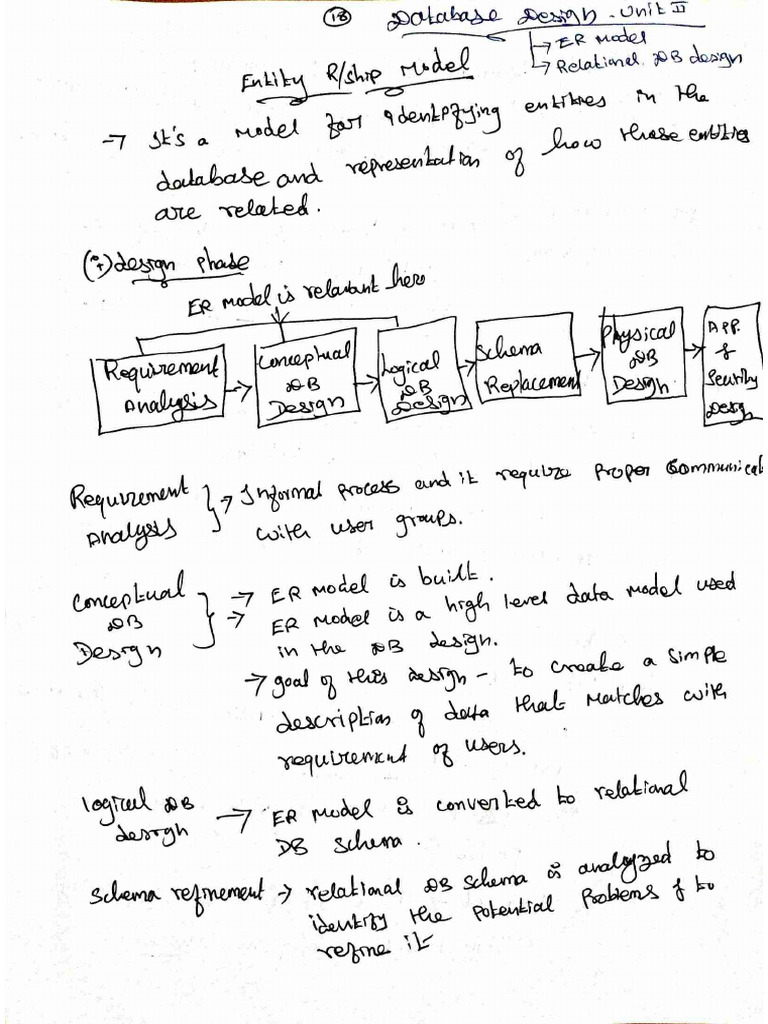 18 Database Design - Unit II
→ ER Model
→ Relational DB design
Entity R/ship Model
→ It's a model for identifying entities in the
database and representation of how those entities
are related.
design phase
ER model is relavant here
Requirement
Analysis
Conceptual
DB
Design
Logical
DB
Design
Schema
Replacement
Physical
DB
Design
App.
&
Security
Design
Requirement
Analysis
→ Informal process and it require proper Communicat
with user groups.
Conceptual
DB
Design
→ ER model is built.
→ ER model is a high level data model used
in the DB design.
→ goal of this design - to create a simple
description of data that matches with
requirement of users.
logical DB
design
→ ER Model is converted to relational
DB schema.
Schema refinement → relational DB schema is analyzed to
identify the potential problems & to
refine it